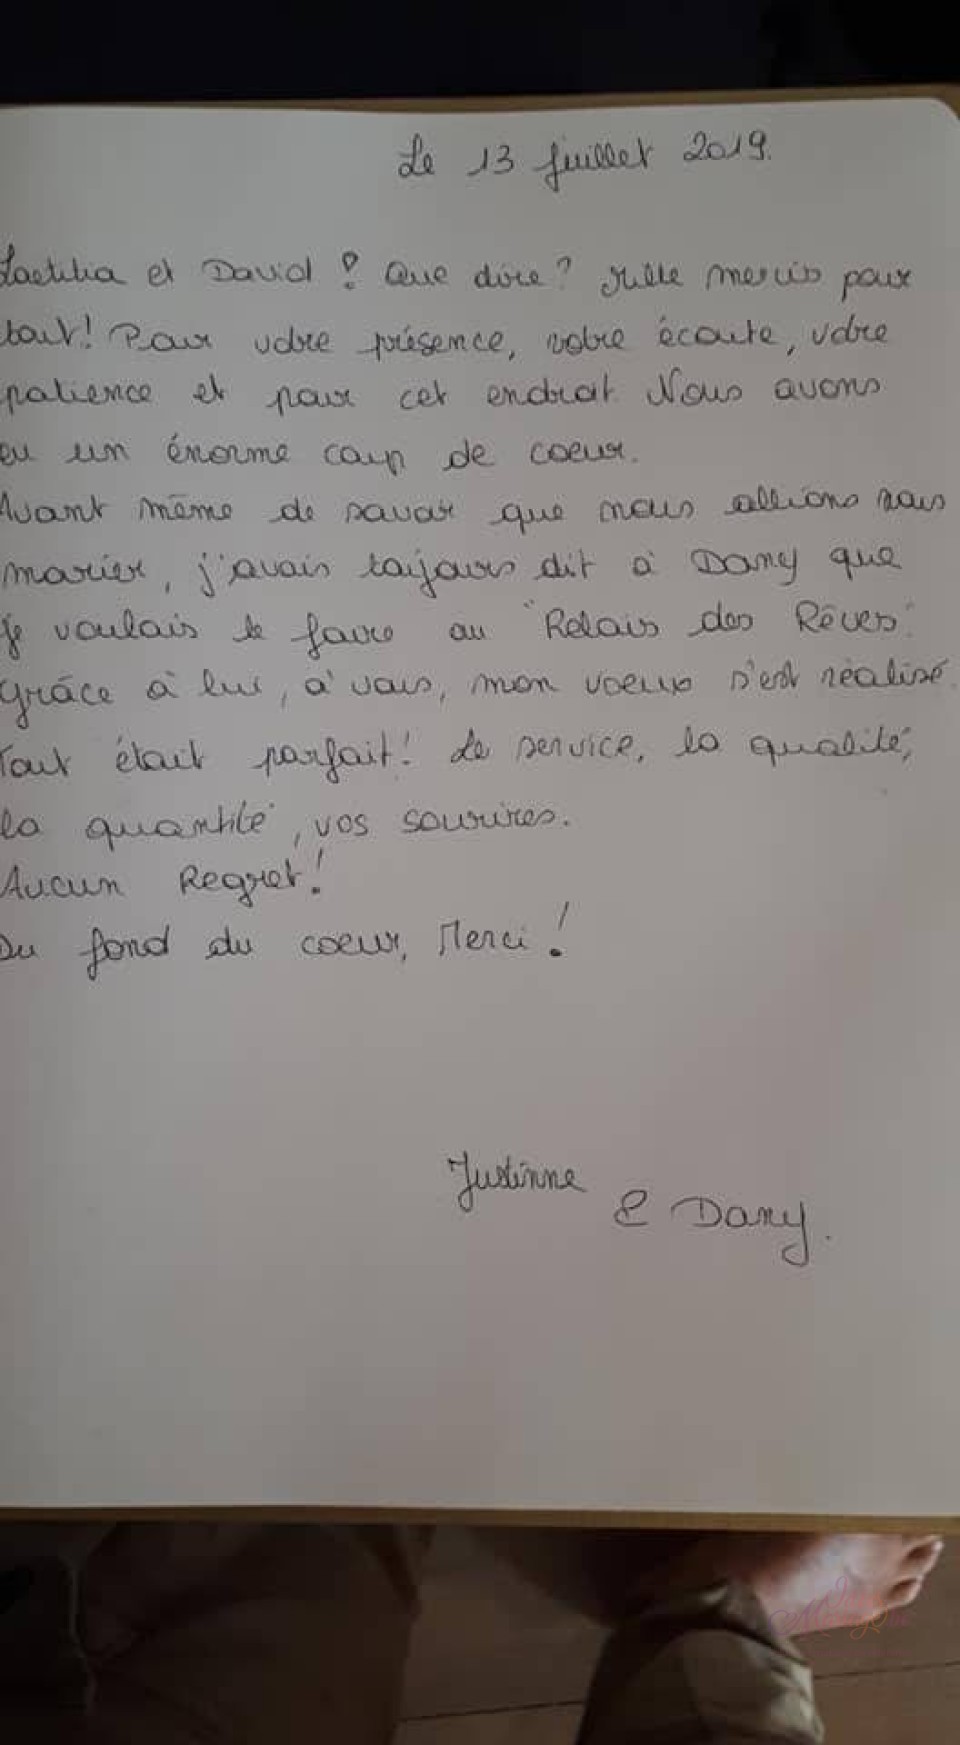 Le 13 juillet 2019.
Laetitia et David ! Que dire ? Mille mercis pour
tout ! Pour votre présence, votre écoute, votre
patience et pour cet endroit. Nous avons
eu un énorme coup de coeur.
Avant même de savoir que nous allions nous
marier, j'avais toujours dit à Dany que
je voulais le faire au "Relais des Rêves".
Grâce à lui, à vous, mon voeux s'est réalisé.
Tout était parfait ! Le service, la qualité,
la quantité, vos sourires.
Aucun Regret !
Du fond du coeur, Merci !
Justinne
& Dany.